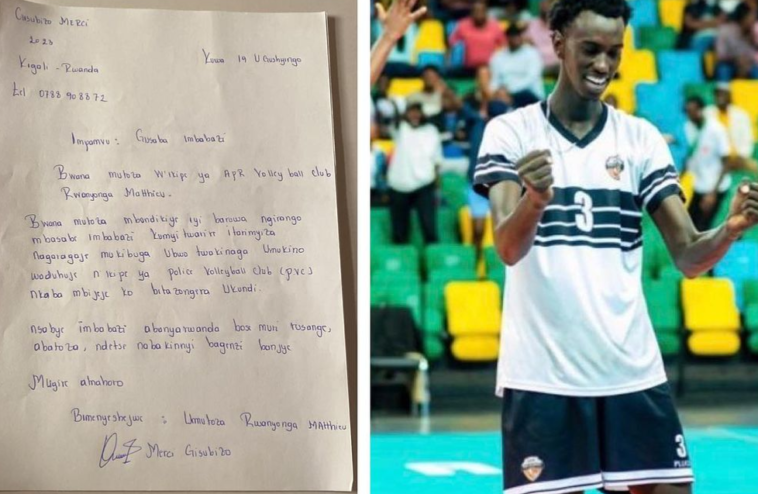 Gisubizo Merci
2023
Kigali - Rwanda
Kuwa 19 Ugushyingo
Tel 0788 908872
Impamvu : Gusaba Imbabazi
Bwana mutoza w'ikipe ya APR Volley ball club
Rwanyonga Matthieu.
Bwana mutoza mbandikiye iyi baruwa ngirango
mbasabe imbabazi kumyitwarire itarimyiza
nagaragaje mukibuga Ubwo twakinaga Umukino
waduhuje n'ikipe ya police Volleyball Club (PVC)
nkaba mbijeje ko bitazongera Ukundi.
nsabye imbabazi abanyarwanda bose muri rusange,
abatoza, ndetse nabakinnyi bagenzi banjye
Mugire amahoro
Bimenyeshejwe : Umutoza Rwanyonga MAtthieu
Merci Gisubizo
3
3